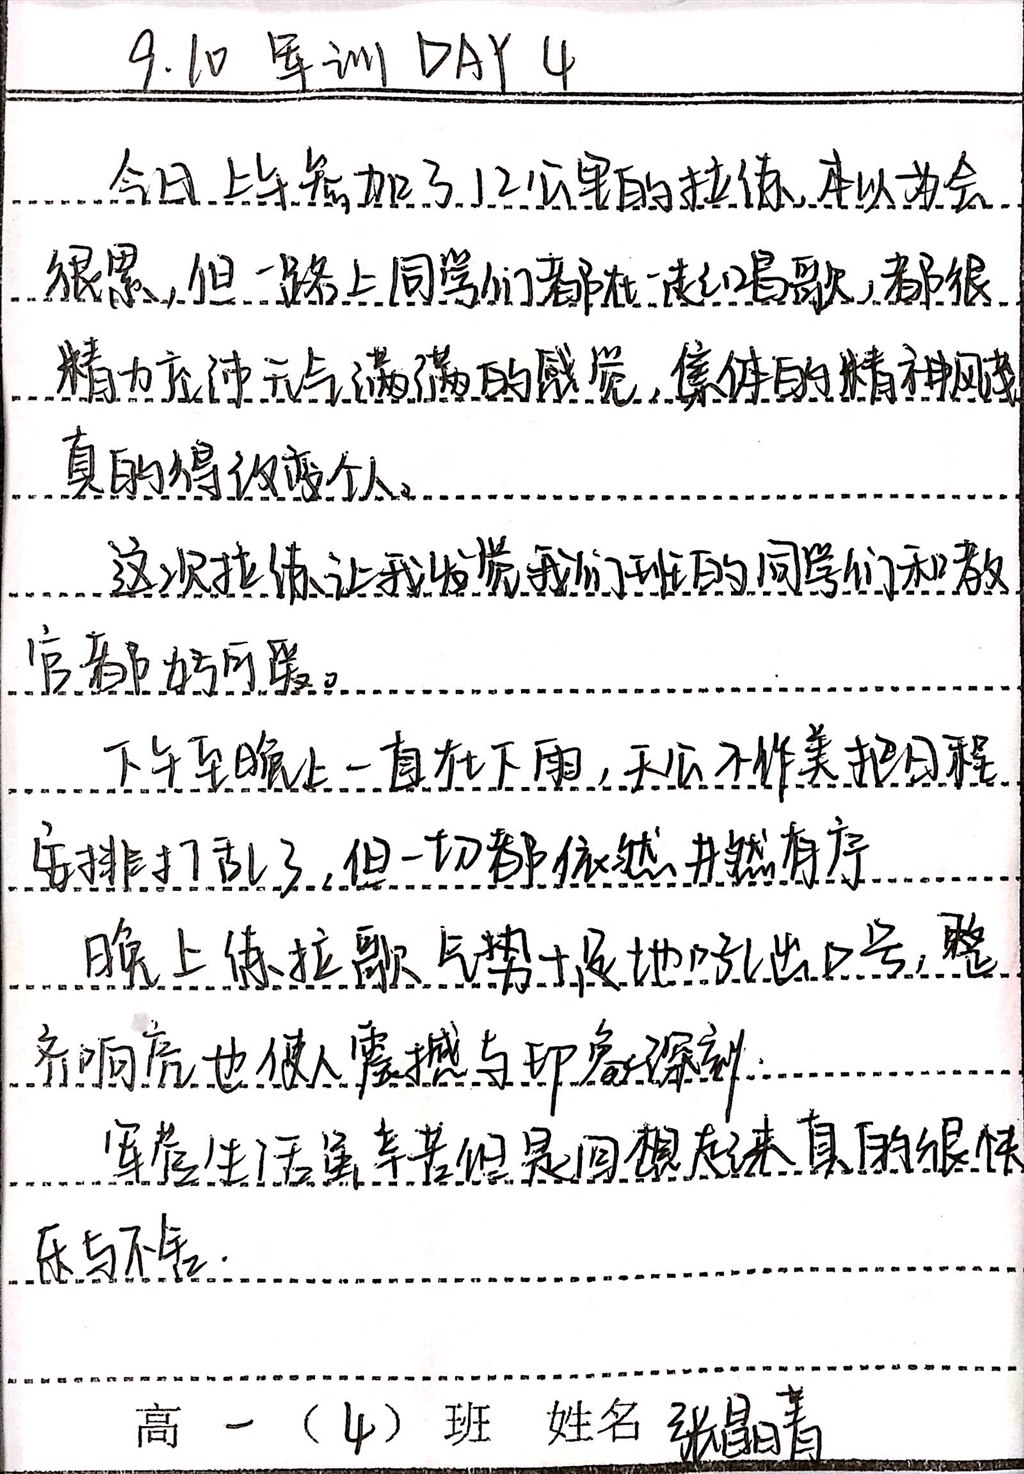 9.10 军训 DAY 4
今日上午参加了12公里的拉练,本以为会
很累,但一路上同学们都在一起唱歌,都很
精力充沛元气满满的感觉,集体的精神风貌
真的得以改变个人。
这次拉练让我发觉我们班的同学们和教
官都好可爱。
下午至晚上一直在下雨,天公不作美把日程
安排打乱了,但一切都依然井然有序
晚上练拉歌气势十足地喊出口号,整
齐响亮也使人震撼与印象深刻.
军营生活虽辛苦但是回想起来真的很快
乐与不舍.
高一(4)班 姓名 张晶菁